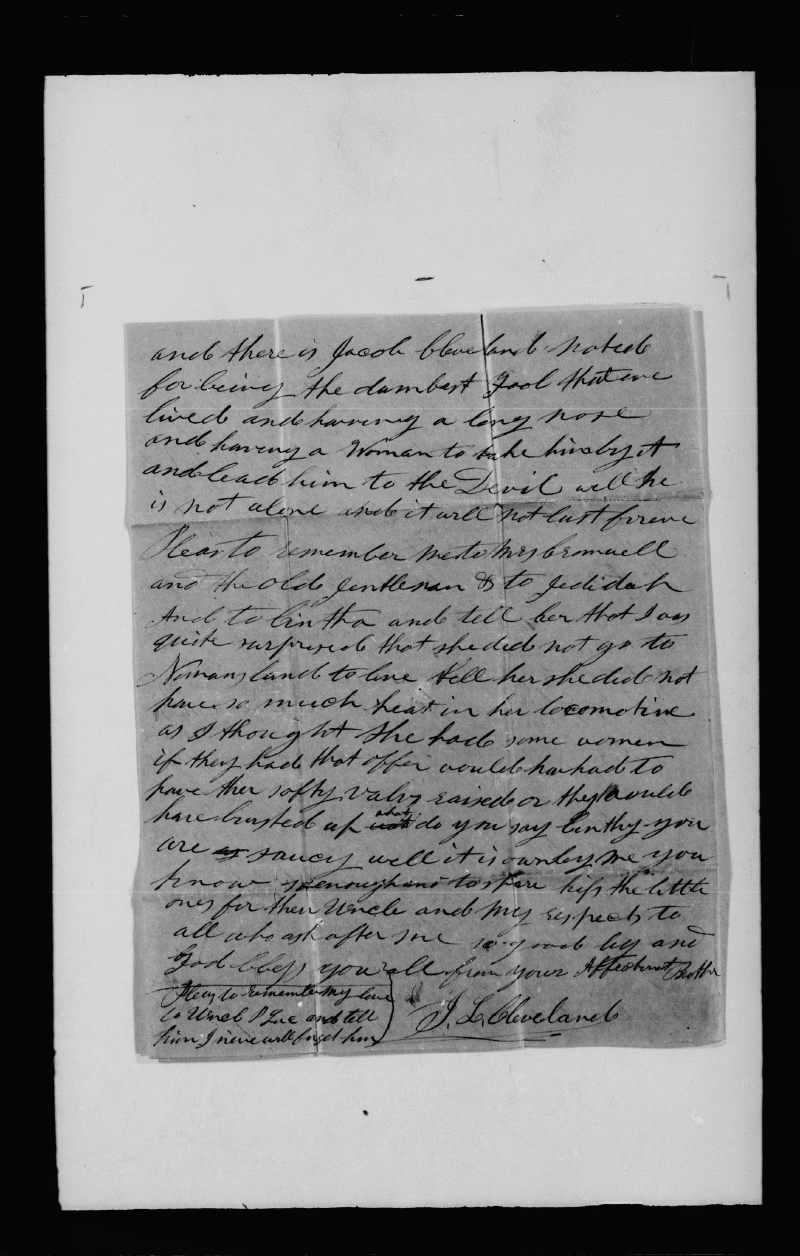 and there is Jacob Cleveland noted
for being the dambest Fool that ever
lived and having a long nose
and having a Woman to take him by it
and lead him to the Devil well he
is not alone and it will not last forever
Pleas to remember me to Mrs Cromwell
and the old Jentleman & to Jedidah
And to Cintha and tell her that I was
quite surprised that she did not go to
Nomansland to live tell her she did not
have so much heat in her locomotive
as I thought she had some women
if they had that offer would had to
have ther safty valvs raised or they would
have bursted up what do you say Cinthy you
are saucy well it is ownly me you
know enough and to spare kiss the little
ones for their Uncle and my respects to
all who ask after me so good by and
God bless you all from your Affectionat Brother
J. L. Cleveland
Pleas to remember my love
to Uncle and tell
him I never will forget him